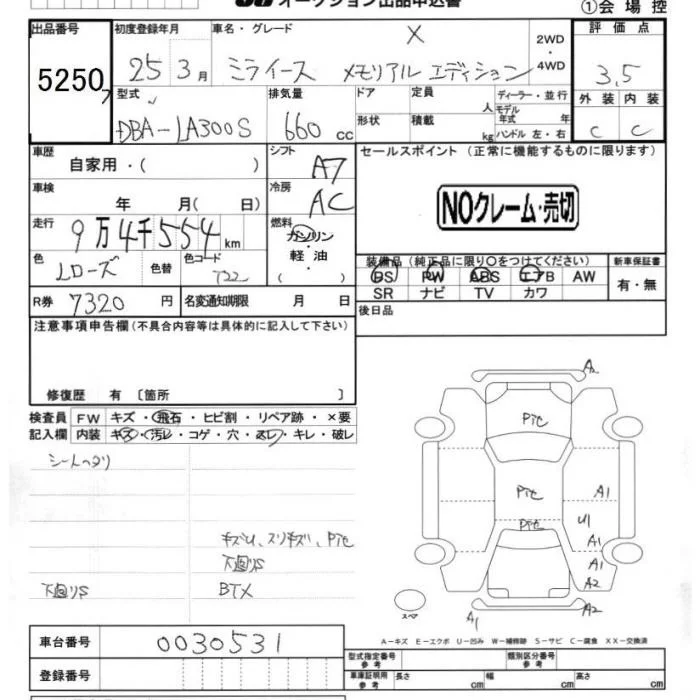 オークション出品申込書
①会場控
出品番号 初度登録年月 車名・グレード 2WD・4WD 評価点
5250 25 3月 ミライース X メモリアル エディション 3.5
型式 排気量 ドア 定員 人 ディーラー・並行 外装 内装
DBA-LA300S 660 cc 形状 積載 kg モデル年式 年 ハンドル 左・右 C C
車歴 シフト セールスポイント (正常に機能するものに限ります)
自家用・( ) A7
車検 冷房 NOクレーム・売切
年 月( 日) AC
走行 燃料
9万4千554km ガソリン・軽油・( )
色 色替 色コード 装備品 (純正品に限り○をつけてください) 新車保証書
Lローズ T22 PS PW ABS エアB AW 有・無
SR ナビ TV カワ
R券 7320円 名変通知期限 月 日 後日品
注意事項申告欄 (不具合内容等は具体的に記入して下さい)
修復歴 有 〔箇所 〕
検査員 FW キズ・飛石・ヒビ割・リペア跡・×要
記入欄 内装 キズ・汚レ・コゲ・穴・スレ・キレ・破レ
シートヘタリ
キズU、スリキズ、Pite
下廻りS
下廻りS BTX
A2
Pite
Pite A1
Pite U1
A1
A1
A2
スペア A1 A2
A-キズ E-エクボ U-凹み W-補修跡 S-サビ C-腐食 XX-交換済
車台番号 0030531
型式指定番号 参考 類別区分番号 参考
登録番号 車庫証明用 参考 長さ cm 幅 cm 高さ cm